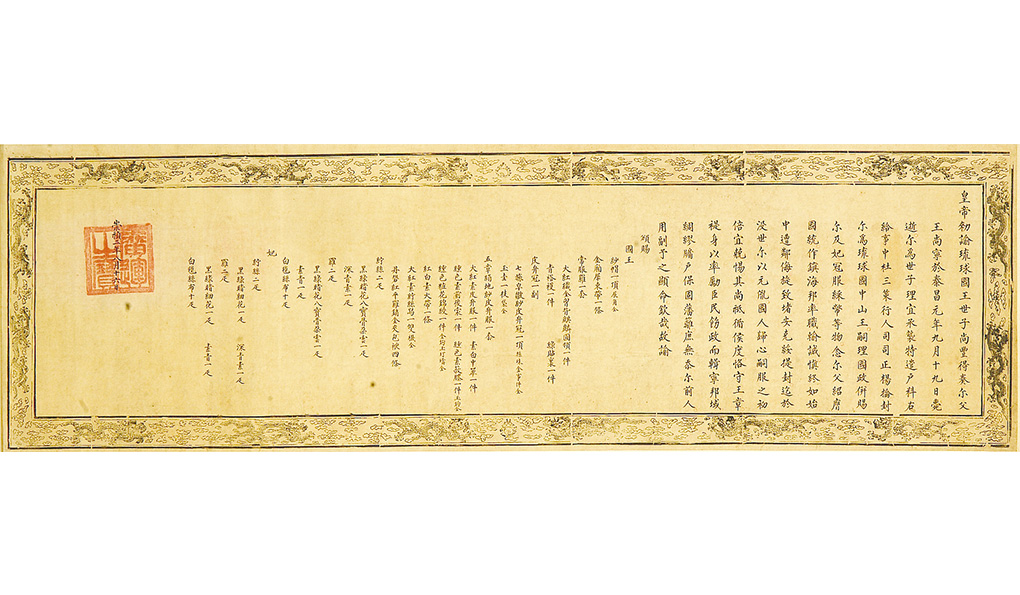 皇帝勑諭琉球國王世子尚豐得奏尔父
王尚寧於泰昌元年九月十九日薨
逝尔為世子理宜承襲特遣戶科右
給事中杜三策行人司司正楊掄封
尔為琉球國中山王嗣理國政併賜
尔及妃冠服綵幣等物念尔父紹膺
國統作鎮海邦率職輸誠慎終如始
中遭鄰海旋致堵安克綏提封迄於
浸世尔以元儲國人歸心嗣服之初
倍宜兢惕其尚祗循侯度恪守王章
禔身以率勵臣民飭政而輯寧邦域
綢繆牖戶保固藩籬庶無忝尔前人
用副予之顯命欽哉故諭
頒賜
國王
紗帽一項展角全
金廂犀束帶一條
常服羅一套
大紅織金胷背麒麟圓領一件
青褡𧞤一件 綠貼裏一件
皮弁冠一副
七旒皂皺紗皮弁冠一項旒珠金事件全
玉圭一枝袋全
五章絹地紗皮弁服一套
大紅素皮弁服一件 素白中單一件
纁色素前後裳一件 纁色素蔽膝一件玉鈎全
纁色粧花錦綬一件金鈎玉玎璫全
紅白素大帶一條
大紅素紵絲舄一雙襪全
丹礬紅平羅銷金夾包袱四條
紵絲二疋
黑綠暗花八寶骨朶雲一疋
深青素一疋
羅二疋
黑綠暗花八寶骨朶雲一疋
素青一疋
白氁絲布十疋
妃
紵絲二疋
黑綠暗細花一疋 深青素一疋
羅二疋
黑綠暗細花一疋 素青一疋
白氁絲布十疋
崇禎二年八月十六日
廣運之寶